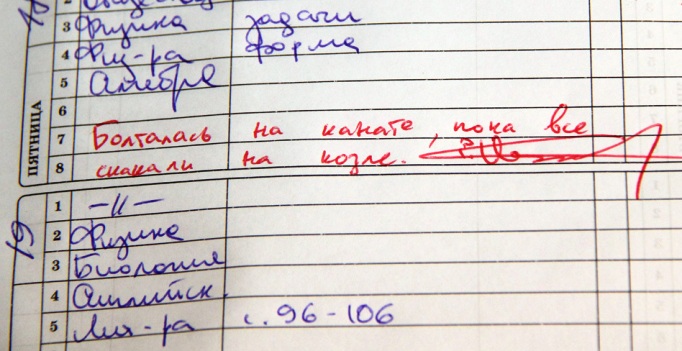 3 Физика задачи
4 Физ-ра форма
5 Алгебра
6
ПЯТНИЦА
7 Болталась на канате, пока все
8 скакали на козле.
19
1 —//—
2 Физика
3 Биология
4 Английск.
5 Лит-ра с. 96-106